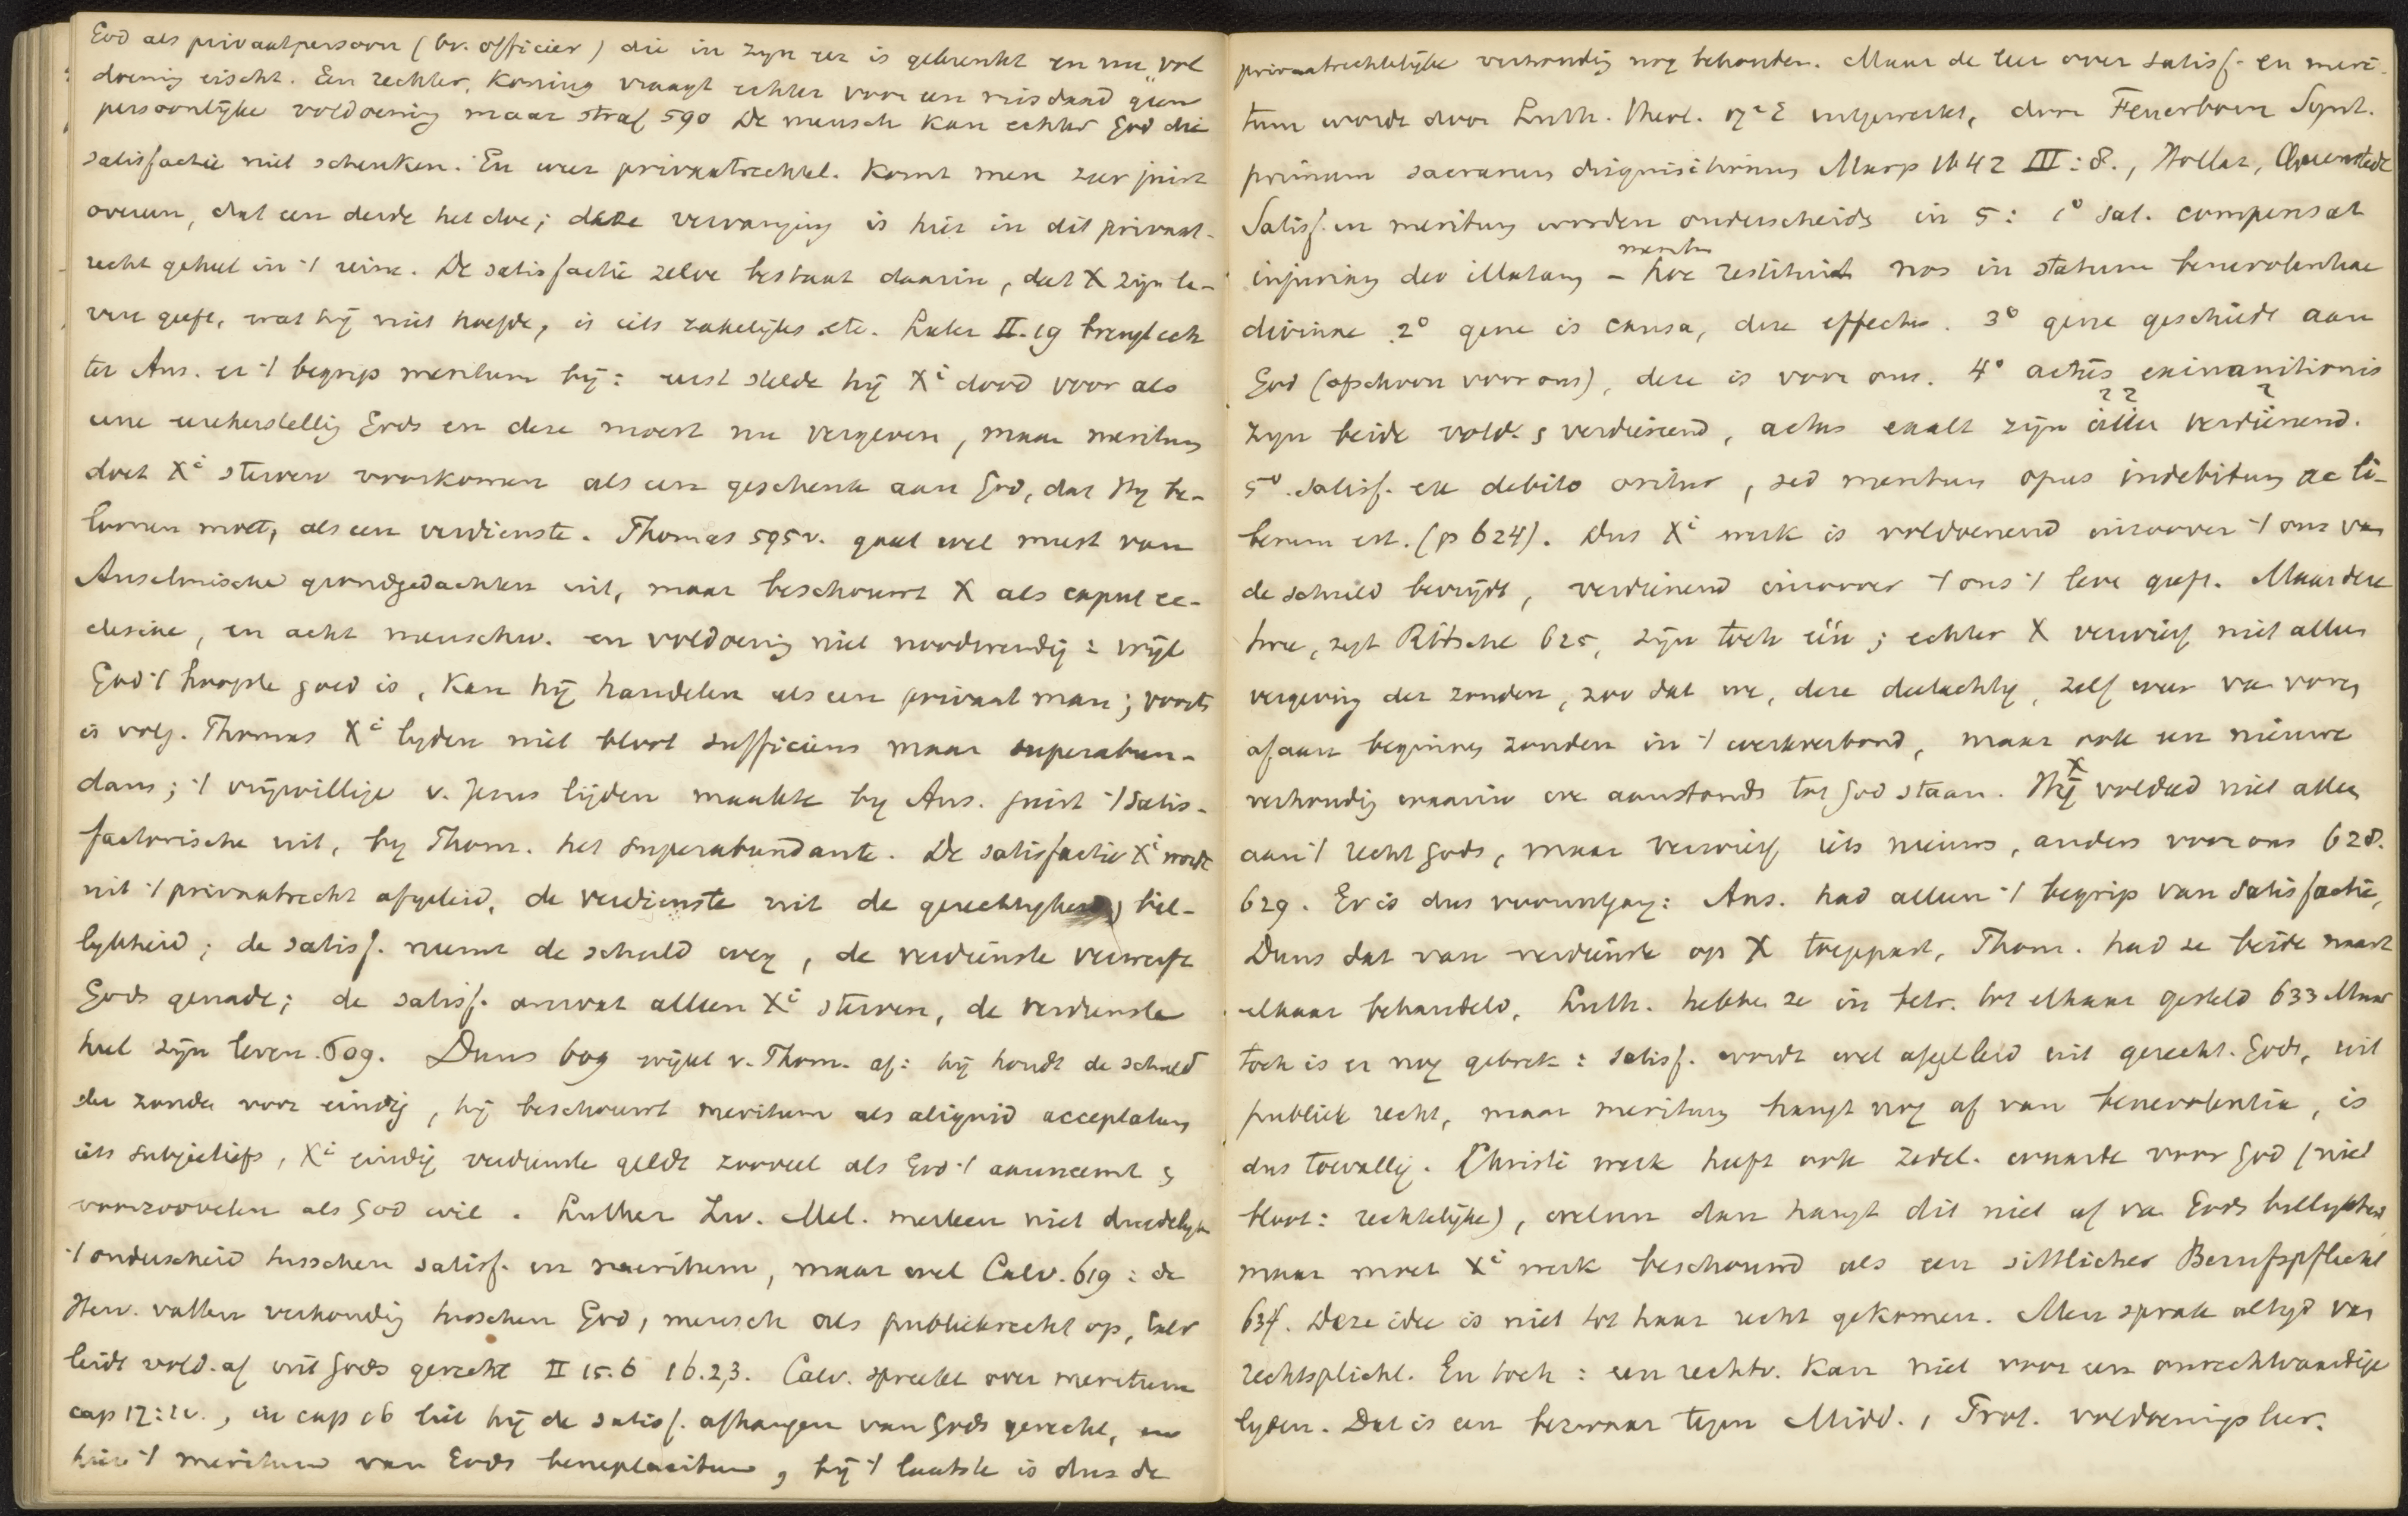 God als privaatpersoon (bv. officier) die in zyn eer is gekrenkt en nu vol
doening eischt. Een rechter, Koning vraagt echter voor een misdaad geen
persoonlijke voldoening maar straf 590 De mensch kan echter God die
satisfactie niet schenken. En weer privaatrechtel. komt men zeer juist
overeen, dat een derde het doe; deze vervanging is hier in dit privaat-
recht geheel in 't reine. De satisfactie zelve bestaat daarin, dat X zijn le-
ven geeft, wat hij niet hoefde, is iets zakelijks etc. Later II.19 brengt ech
ter Ans. er 't begrip meritum bij: eerst stelde hij Xi dood voor als
eene eerherstellig Gods en deze moest nu vergeven, maar meritum
doet Xi sterven voorkomen als een geschenk aan God, dat Hy be-
loonen moet, als een verdienste. Thomas 595v. gaat wel meest van
Anselmische grondgedachten uit, maar beschouwt X als caput ec-
clesiae, en acht menschw. en voldoening niet noodwendig: wijl
God 't hoogste goed is, kan hij handelen als een privaat man; voorts
is volg. Thomas Xi lyden niet bloot sufficiens maar superabun-
dans; 't vrijwillige v. Jezus lijden maakte by Ans. juist 't satis-
factorische uit, by Thom. het superabundante. De satisfactie Xi wordt
uit 't privaatrecht afgeleid, de verdienste uit de gerechtigheid) bil-
lykheid; de satisf. neemt de schuld weg, de verdienste verwerft
Gods genade; de satisf. omvat alleen Xi sterven, de verdienste
heel zijn leven. 609. Duns 609 wijkt v. Thom. af: hij houdt de schuld
der zonde voor eindig, hij beschouwt meritum als aliquid acceptatum
iets subjectiefs, Xi eindig verdienste geldt zooveel als God 't aanneemt &
voorzoovelen als God wil. Luther Zw. Mel. merken niet duidelyk
't onderscheid tusschen satisf. en meritum, maar wel Calv. 619: de
Herv. vatten verhoudig tusschen God, mensch als publiekrecht op, Calv
leidt vold. af uit Gods gerecht II 15.6 16.2,3. Calv. spreekt over meritum
cap 17: , in cap 16 liet hij de satisf. afhangen van Gods gerecht, en
hier 't meritum van Gods beneplacitum, bij 't laatste is dus de
privaatrechtelijke verhoudig nog behouden. Maar de leer over satisf. en meri-
tum wordt door Luth. Theol. 17e E uitgewerkt, door Feuerborn Synt.
primum sacrarum disquisitionum Marp 1642 III:8., Hollaz, Quenstedt
Satisf. en meritum worden onderscheids in 5: 1o sat. compensat
injuriam deo illatam – hoc restituit nos in statum benevolentiae
meritum
divinae 2o gene is causa, deze effectus. 3o gene geschiedt aan
God (ofschoon voor ons), deze is voor ons. 4o actus exinanitionis
zyn beide vold. & verdienend, actus exalt zijn alleen verdienend.
5o. Satisf. ex debito oritur, sed meritum opus indebitum ac li-
berum est. (p 624). Dus Xi werk is voldoenend inzoover 't ons van
de schuld bevrijdt, verdienend inzoover 't ons 't leve geeft. Maar deze
twee, zegt Ritschl 625, zijn toch één; echter X verwierf niet alleen
vergeving der zonden, zoo dat we, deze deelachtig, zelf weer va voren
afaan beginnen zonden in 't werkverbond, maar ook een nieuwe
verhoudig waarin we aanstonds tot God staan. Hij X voldeed niet alleen
aan 't recht Gods, maar verwierf iets nieuws, anders voor ons 628.
629. Er is dus vooruitgang: Ans. had alleen 't begrip van satisfactie,
Duns dat van verdienste op X toegepast, Thom. had ze beide naast
elkaar behandeld, Luth. hebben ze in betr. tot elkaar gesteld 633 Maar
toch is er nog gebrek: satisf. wordt wel afgeleid uit gerecht. Gods, uit
publiek recht, maar meritum hangt nog af van benevolentia, is
dus toevallig. Christi werk heeft ook zedel. waarde voor God (niet
bloot: rechtelijke), welnu dan hangt dit niet af va Gods billykheid
maar moet Xi werk beschouwd als een sittlicher Berufspflicht
634. Deze idee is niet tot haar recht gekomen. Men sprak altyd van
rechtsplicht. En toch: een rechtv. kan niet voor een onrechtvaardige
lyden. Dat is een bezwaar tegen Midd., Prot. voldoenings leer.